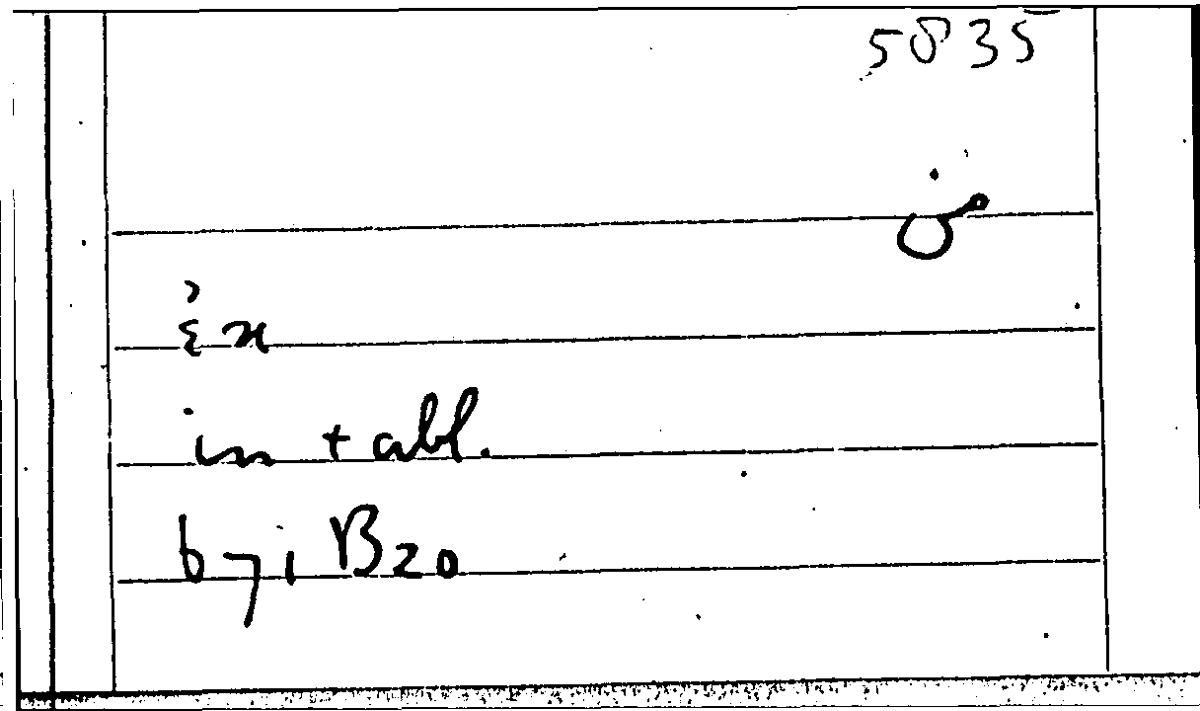 5835
من
ἐκ
in + abl.
671 B20